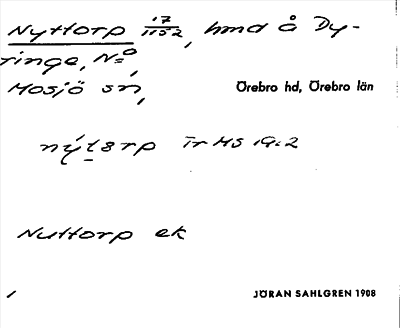 Nyttorp 17/1152, hmd å Dy-
ringe, N=o,
Mosjö sn,
Örebro hd, Örebro län
Nuttorp ek
JÖRAN SAHLGREN 1908